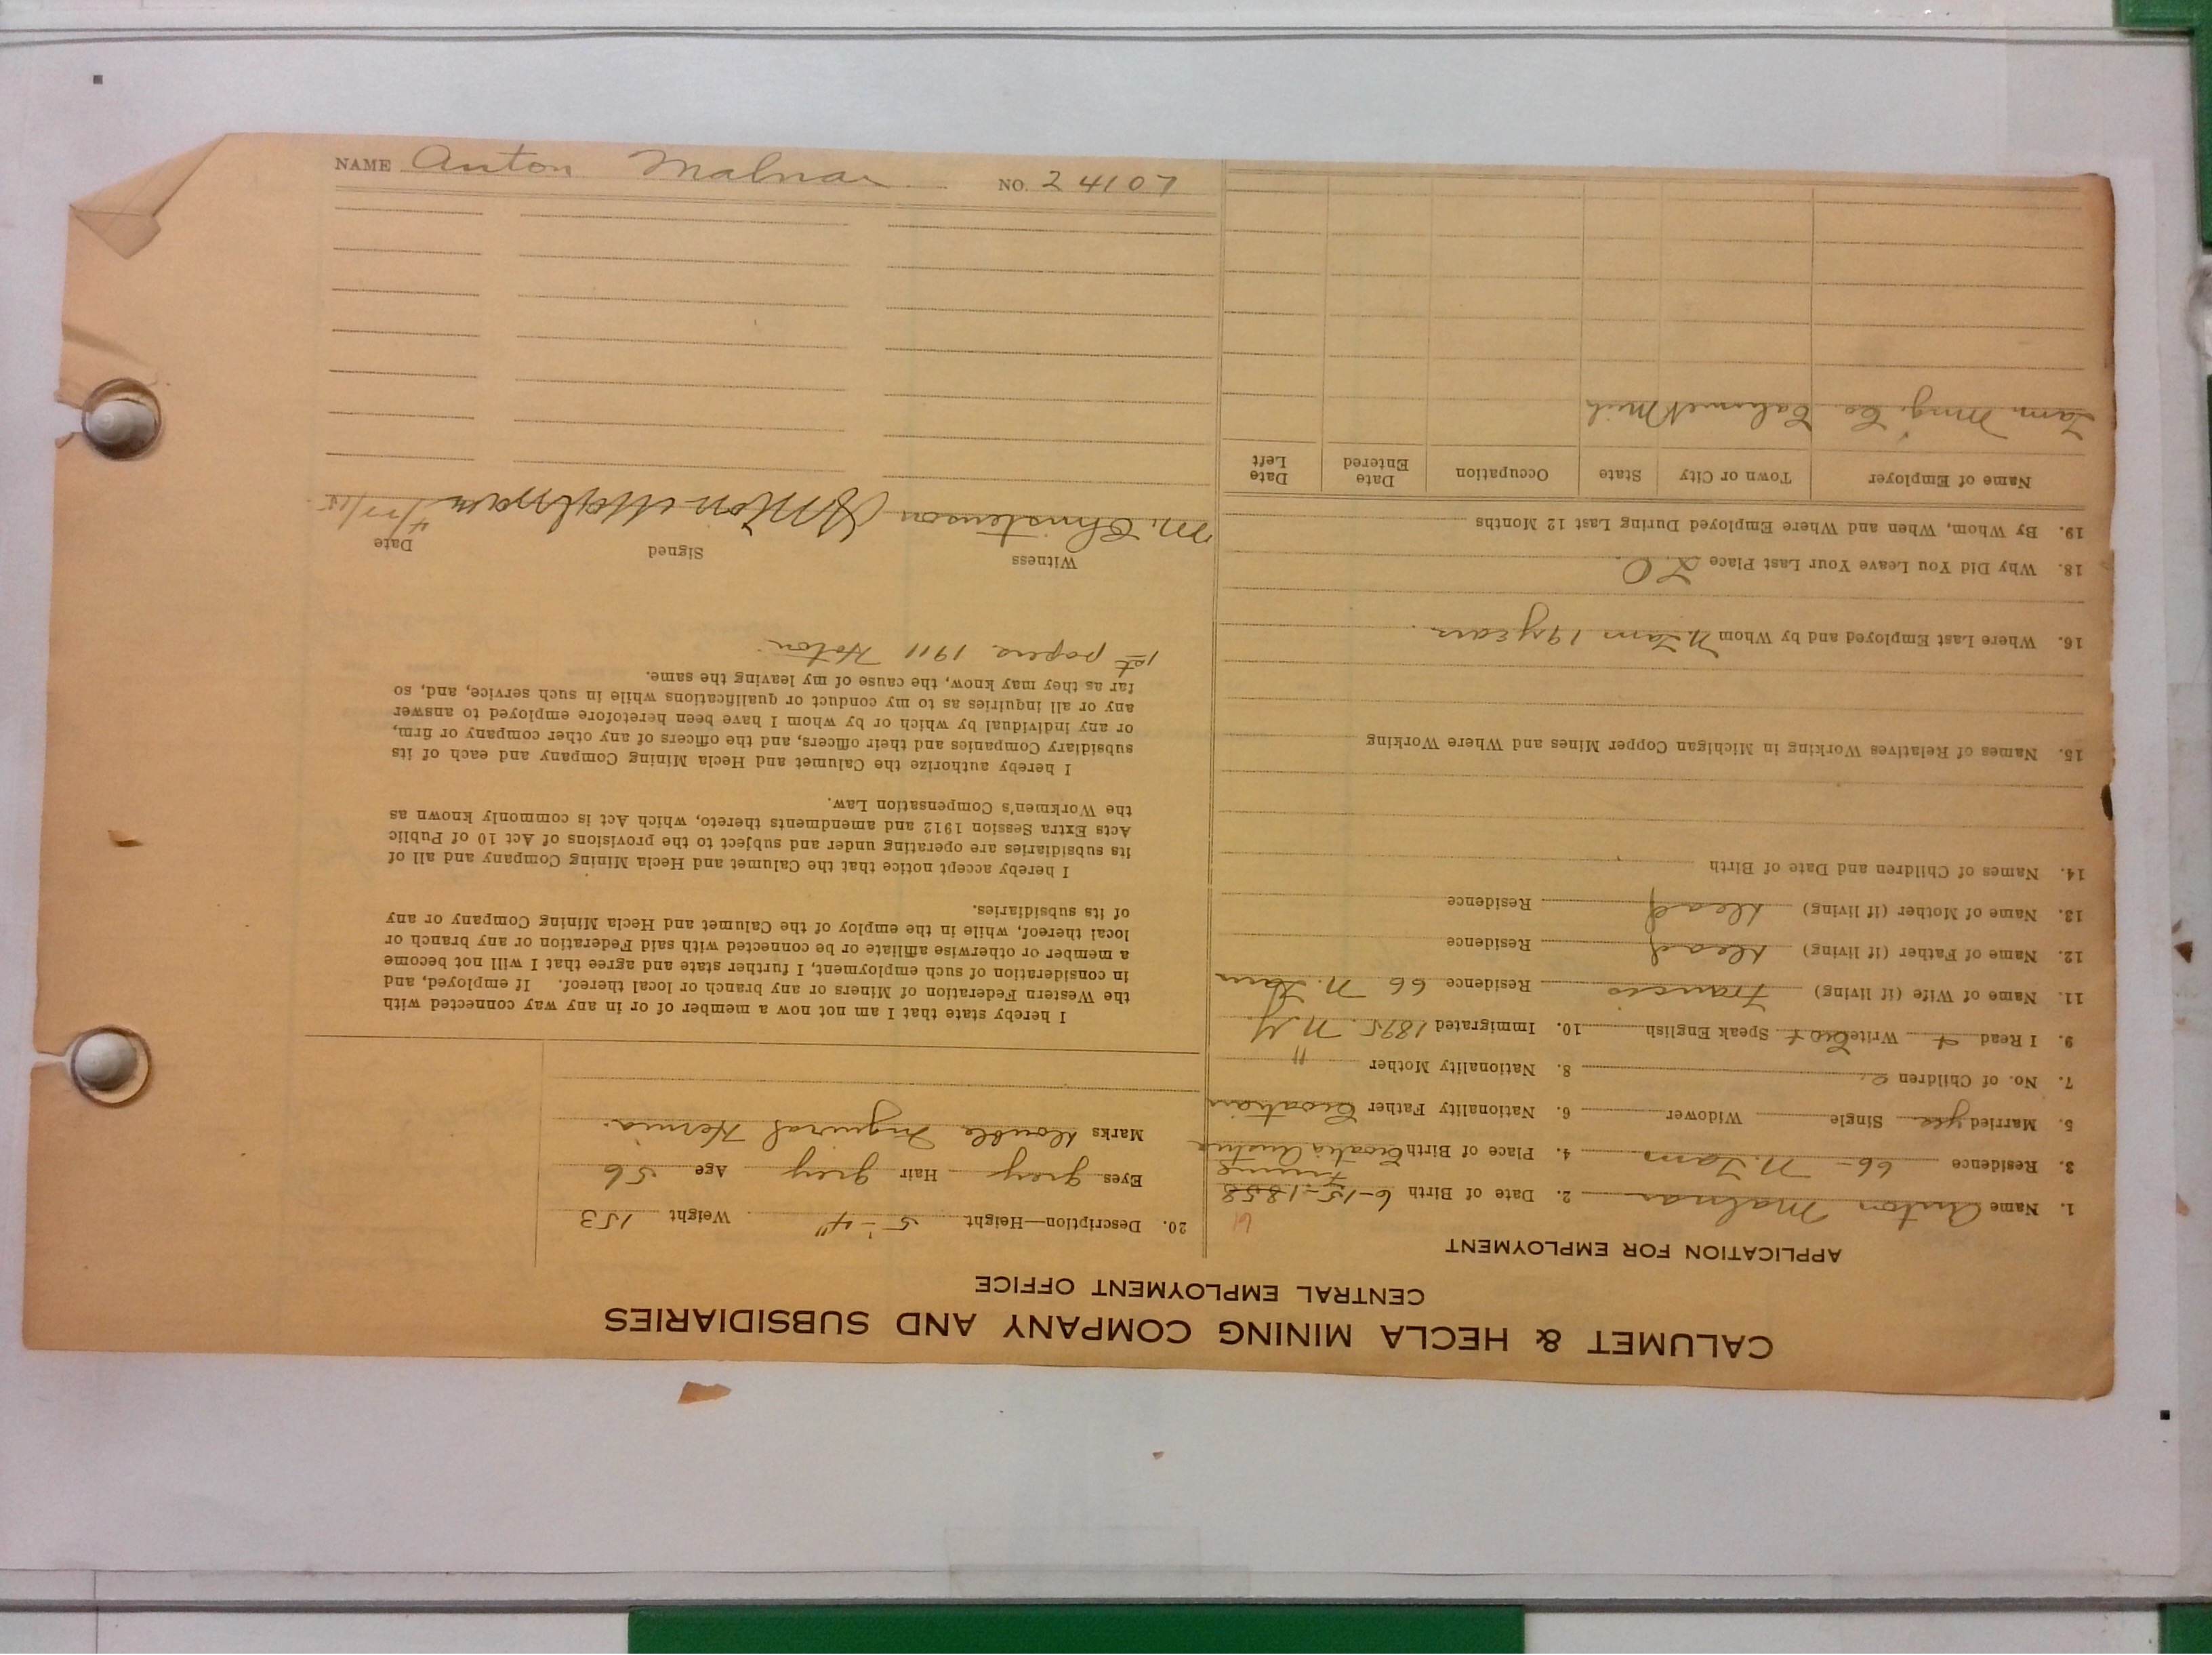 CALUMET & HECLA MINING COMPANY AND SUBSIDIARIES
CENTRAL EMPLOYMENT OFFICE
APPLICATION FOR EMPLOYMENT
19
1. Name Anton Malnar 2. Date of Birth 6-15-1858
Fiume
3. Residence 66 - N. Tam 4. Place of Birth Croatia Austria
5. Married yes Single Widower 6. Nationality Father Croatian
7. No. of Children 2. 8. Nationality Mother "
9. I Read + Write Cro + Speak English 10. Immigrated 1895. N.Y.
11. Name of Wife (if living) Francis Residence 66 N. Tam
12. Name of Father (if living) dead Residence
13. Name of Mother (if living) dead Residence
14. Names of Children and Date of Birth
15. Names of Relatives Working in Michigan Copper Mines and Where Working
16. Where Last Employed and by Whom N. Tam 19 years.
18. Why Did You Leave Your Last Place
19. By Whom, When and Where Employed During Last 12 Months
Name of Employer Town or City State Occupation Date Entered Date Left
Tam. Mng. Co. Calumet Mich
20. Description—Height 5'-4" Weight 153
Eyes grey Hair grey Age 56
Marks double Inguinal Hernia.
I hereby state that I am not now a member of or in any way connected with
the Western Federation of Miners or any branch or local thereof. If employed, and
in consideration of such employment, I further state and agree that I will not become
a member or otherwise affiliate or be connected with said Federation or any branch or
local thereof, while in the employ of the Calumet and Hecla Mining Company or any
of its subsidiaries.
I hereby accept notice that the Calumet and Hecla Mining Company and all of
its subsidiaries are operating under and subject to the provisions of Act 10 of Public
Acts Extra Session 1912 and amendments thereto, which Act is commonly known as
the Workmen's Compensation Law.
I hereby authorize the Calumet and Hecla Mining Company and each of its
subsidiary Companies and their officers, and the officers of any other company or firm,
or any individual by which or by whom I have been heretofore employed to answer
any or all inquiries as to my conduct or qualifications while in such service, and, so
far as they may know, the cause of my leaving the same.
1st papers 1911 Hoton
Witness Signed Date
M. Christenson Anton Malnar
NAME Anton Malnar NO. 24107